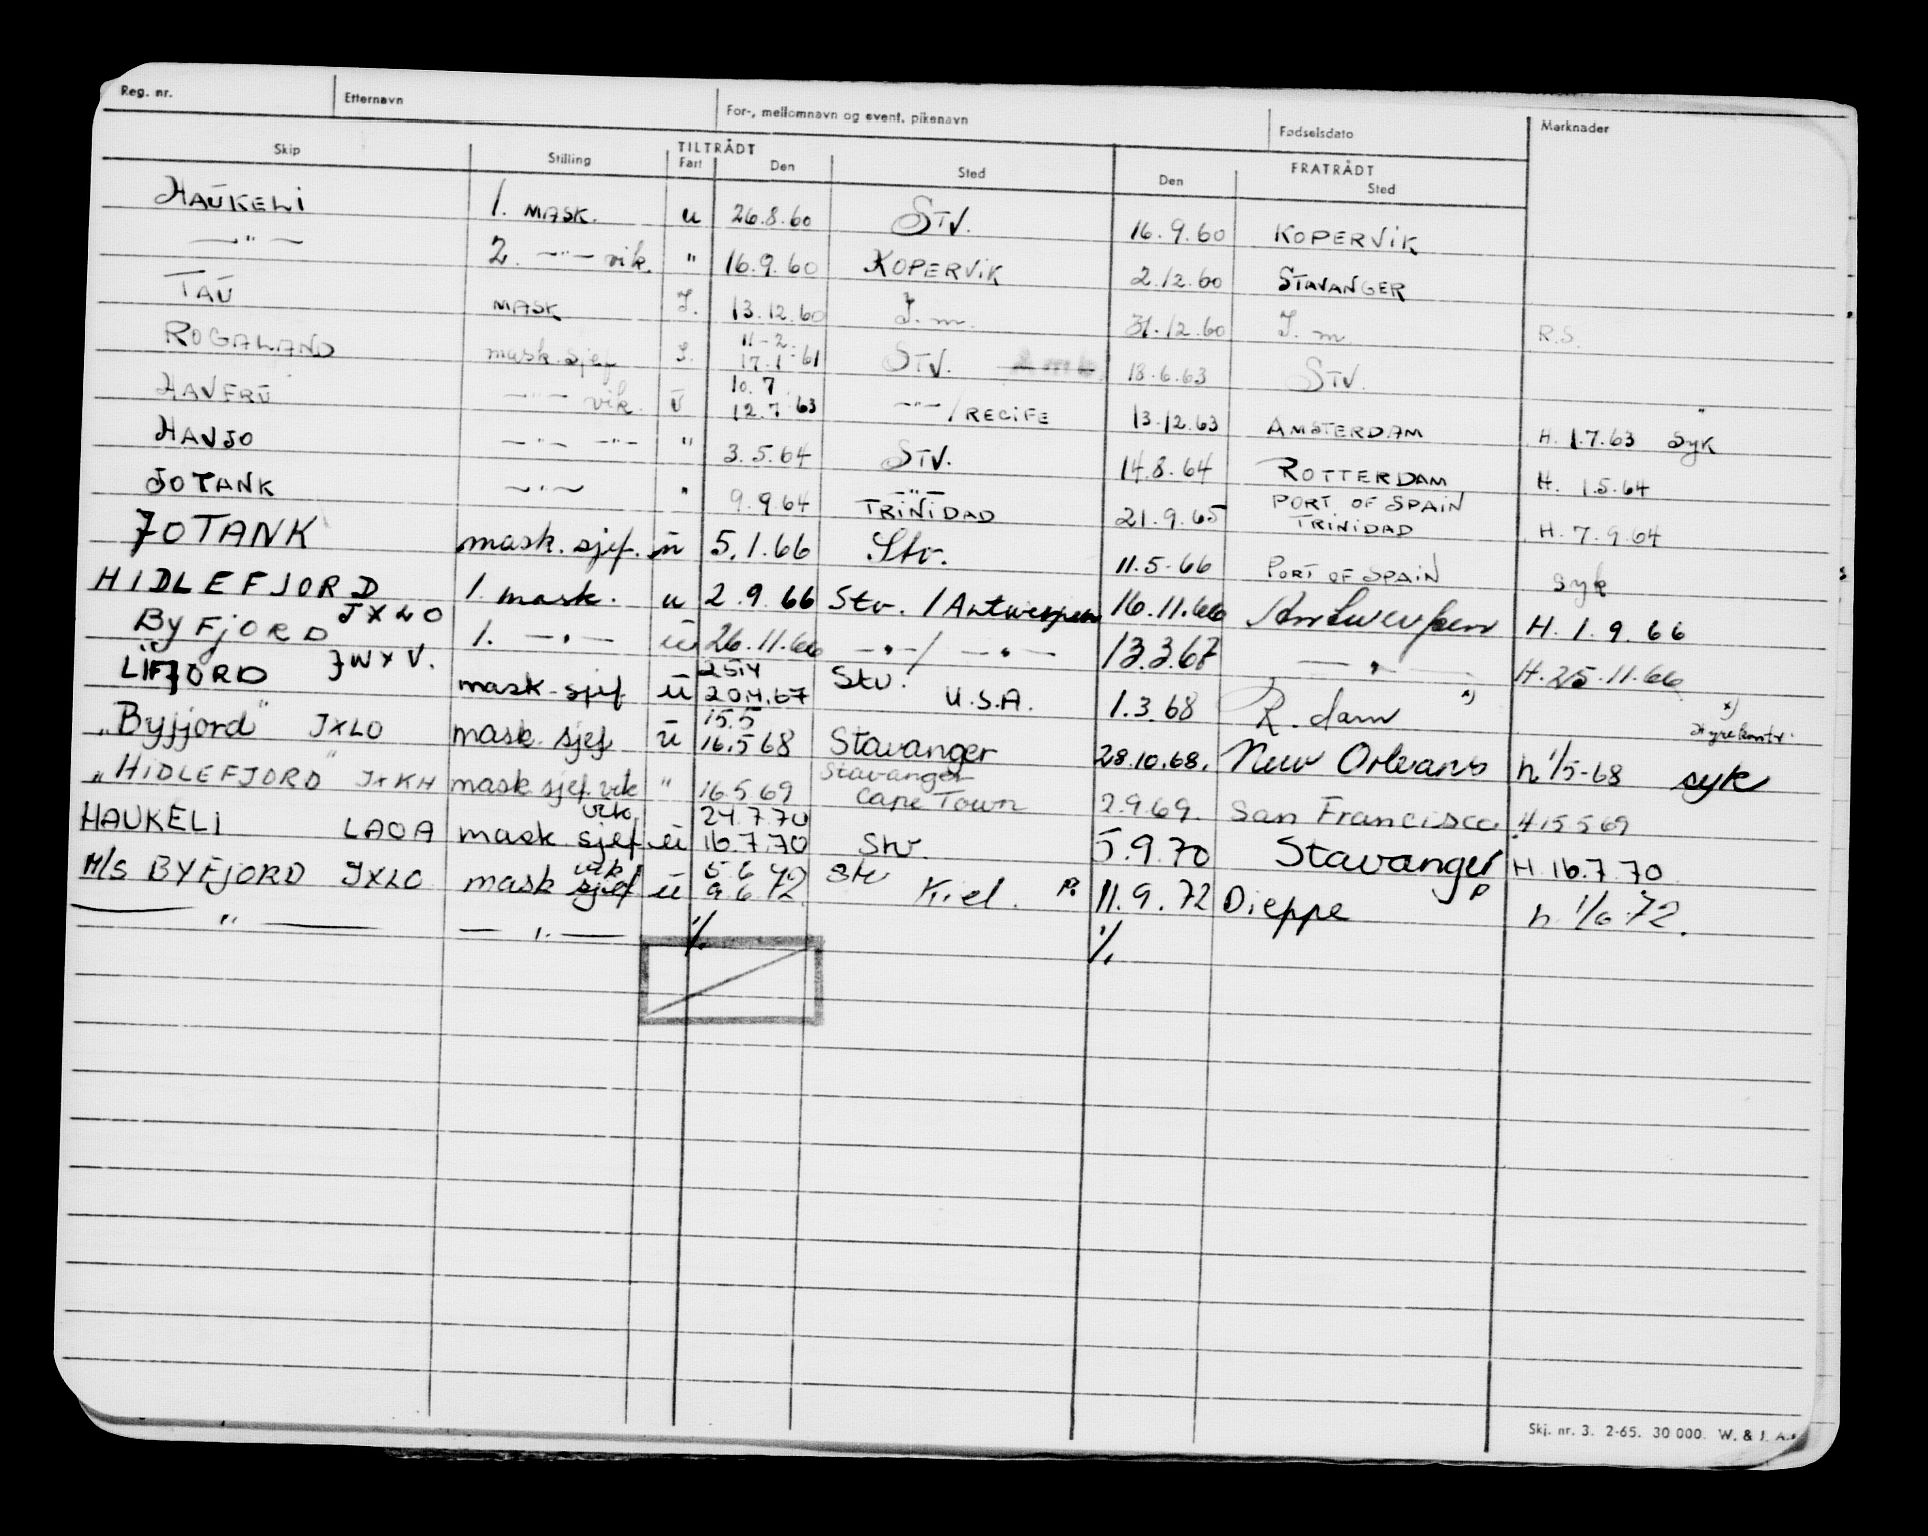 Reg. nr. Etternavn For-, mellomnavn og event. pikenavn Fødselsdato Merknader
Skip Stilling TILTRÅDT Fart Den Sted FRATRÅDT Den Sted
HAUKELI 1. MASK. u 26.8.60 STV. 16.9.60 KOPERVIK
—"— 2. —"— vik. " 16.9.60 KOPERVIK 2.12.60 STAVANGER
TAU MASK J. 13.12.60 J.m. 31.12.60 J.m R.S.
ROGALAND mask.sjef J. 11-2. 17.1-61 STV. 18.6.63 STV.
HAVFRU —"— vik. ū 10.7 12.7.63 —"— / RECIFE 13.12.63 AMSTERDAM H. 1.7.63 Syk
HAVJO —"— —"— " 3.5.64 STV. 14.8.64 ROTTERDAM H. 1.5.64
JOTANK —"— " 9.9.64 —"— TRINIDAD 21.9.65 PORT OF SPAIN TRINIDAD H. 7.9.64
JOTANK mask. sjef. ū 5.1.66 Stv. 11.5.66 PORT OF SPAIN syk
HIDLEFJORD 1. mask. u 2.9.66 Stv. / Antwerpen 16.11.66 Antwerpen H. 1.9.66
ByFjORD JXLO 1. —"— ū 26.11.66 —"—/ —"— 13.3.67 —"— H.25.11.66
LIFJORD JWXV. mask.sjef ū 25.4 20.4.67 Stv. U.S.A. 1.3.68 R.dam x) x) styrekontr.
"Byfjord" JXLO mask. sjef ū 15.5 16.5 68 Stavanger 28.10.68. New Orleans h 1/5-68 syk
"HIDLEFJORD" JXKH mask sjef. vik " 16.5 69 Stavanger Cape Town 2.9.69. San Francisco H 15 5 69
HAUKELI LAOA mask. sjef vik. ū 24.7.70 16.7.70 Stv. 5.9.70 Stavanger H. 16.7.70
M/S BYFJORD JXLO mask sjef vik ū 5.6 72 9.6.72. Stv Kiel. P. 11.9.72 Dieppe P h 1/6.72.
—"— —"— % %
Skj. nr. 3. 2-65. 30 000. W. & J. A.s